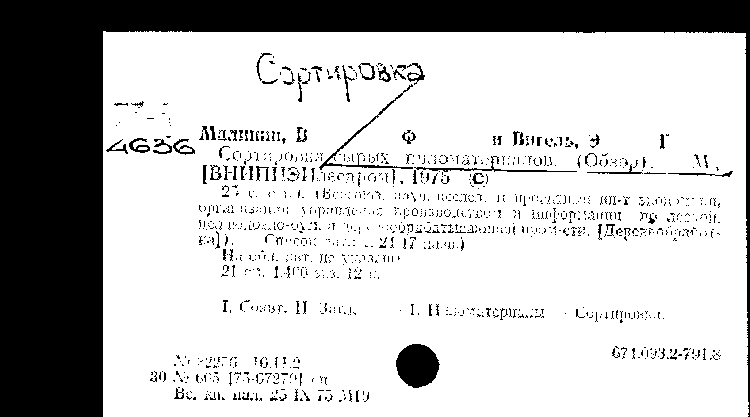 Сортировка
4636
Малинин, В Ф и Вигель, Э Г
Сортировка сырых пиломатериалов. (Обзор). М.,
[ВНИПИЭИлеспром], 1975 ©
(Всесоюз. науч. исслед. и проектный ин-т экономики,
организации управления производством и информации по лесной,
целлюлозно-бум. и деревообрабатывающей пром-сти. [Деревообработ-
ка]). Список лит.: с. 21 (7 назв.)
На обл. авт. не указаны
21 см. 1.400 экз. 12 к.
I. Соавт. II Загл. 1. Пиломатериалы — Сортировка.
674.093.2-791.8
16.11.2
30 № 605 [75-67279] сп
Вс. кн. пал. 25 IX 75 М19